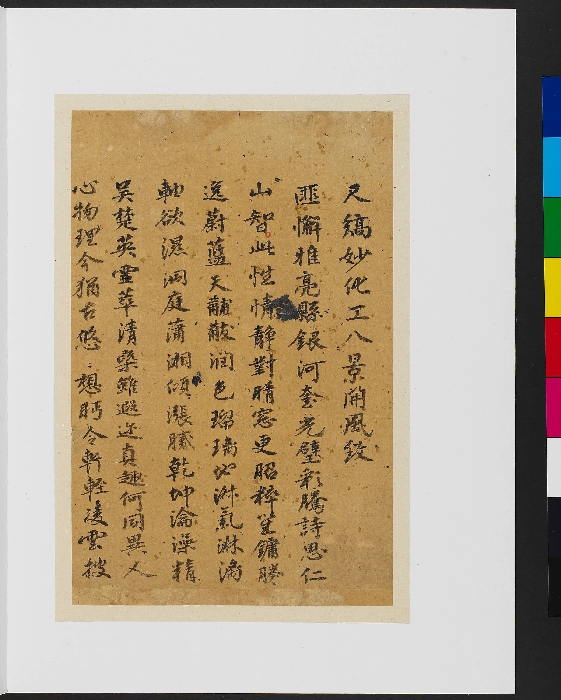 尺縞妙化工八景開風致
匪懈雅亮縣銀河奎光璧彩騰詩思仁
山智此性情靜對晴窓更昭粹笙鏞勝
逸蔚藍天黼黻润色瑠璃地淋氣淋漓
軸欲濕洞庭瀟湘傾漲勝乾坤淪藻精
吳楚英靈萃清樂雖遐迩真趣何同異人
心物理今猶古悠〻想眄令軒輊凌雲披